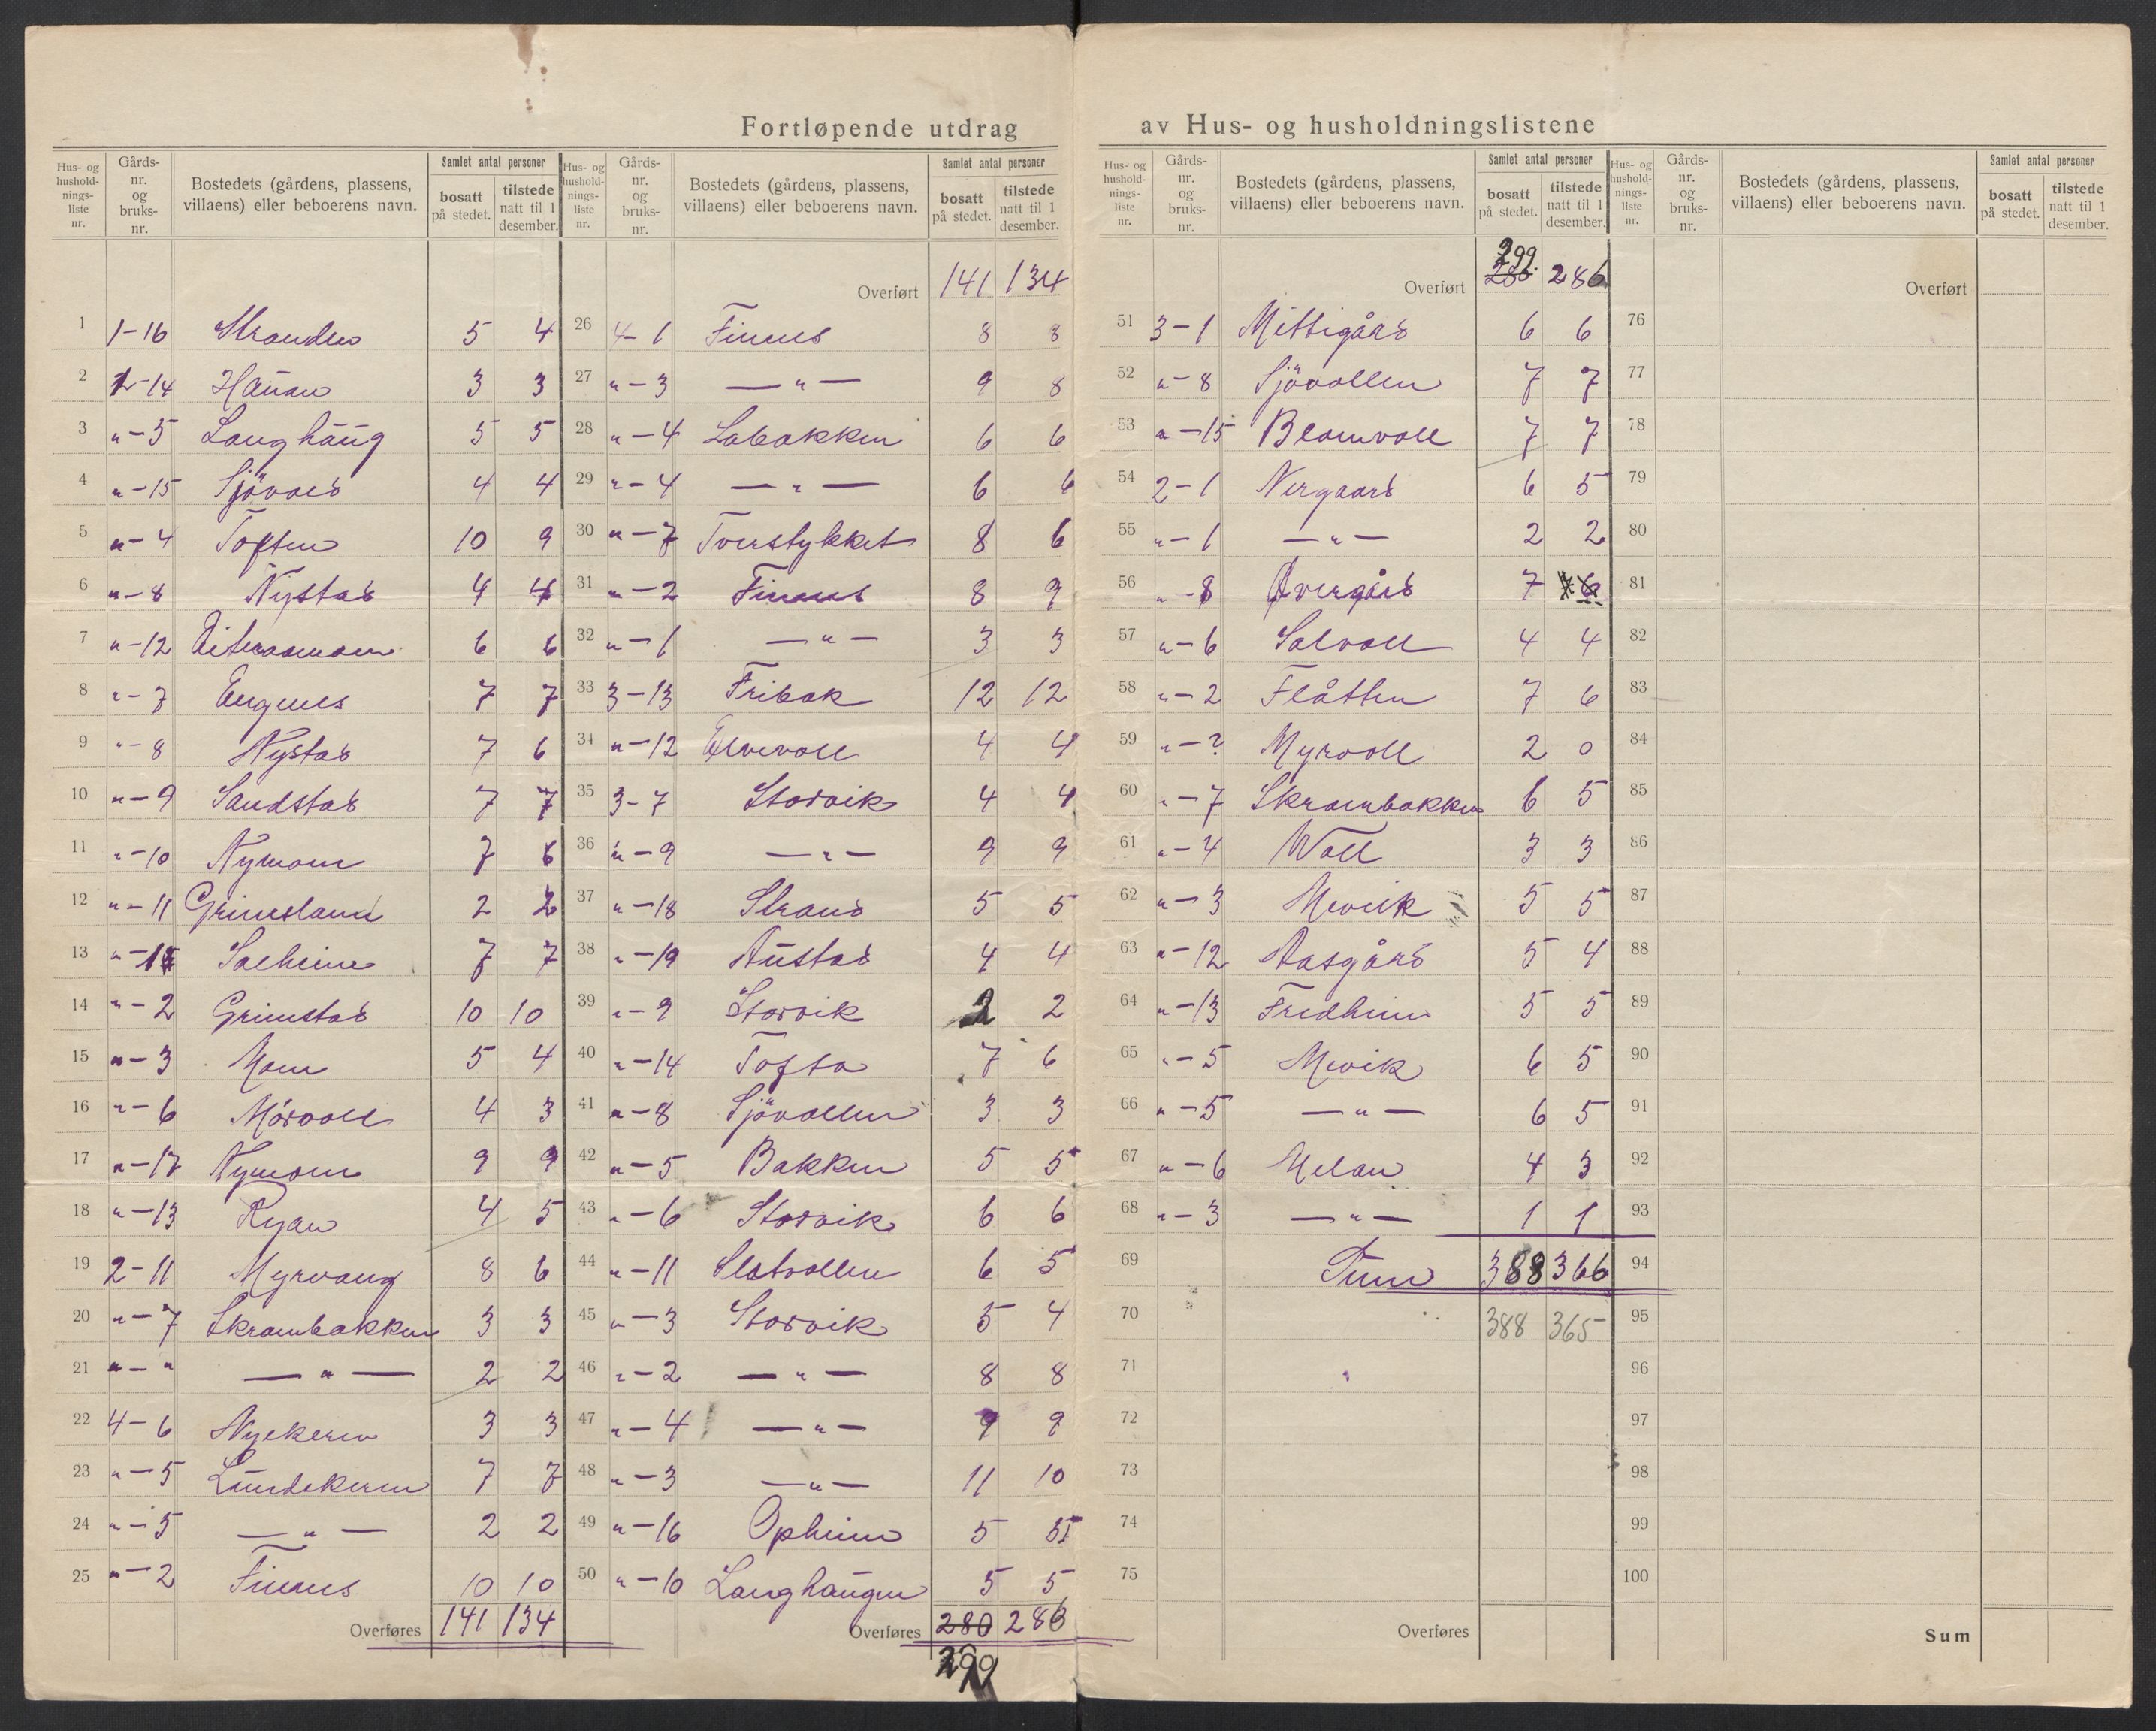 Fortløpende utdrag av Hus- og husholdningslistene
Hus- og husholdnings-liste nr. Gårds-nr. og bruks-nr. Bostedets (gårdens, plassens, villaens) eller beboerens navn. Samlet antal personer bosatt på stedet. tilstede natt til 1 desember.
1 1-16 Stranden 5 4
2 1-14 Haugan 3 3
3 "-5 Langhaug 5 5
4 "-15 Sjövold 4 4
5 "-4 Toften 10 9
6 "-8 Nystad 4 4
7 "-12 6 6
8 "-7 Engnes 7 7
9 "-8 Nystad 7 6
10 "-9 Sandstad 7 7
11 "-10 Nymoen 7 6
12 "-11 Grimsland 2 2
13 Solheim 7 7
14 "-2 Grimstad 10 10
15 "-3 Moen 5 4
16 "-6 Mörvoll 4 3
17 "-17 Nymoen 9 9
18 "-13 Ryan 4 5
19 2-11 Myrvang 8 6
20 "-7 Skrambakken 3 3
21 "-" —"— 2 2
22 4-6 Nyekeren 3 3
23 "-5 Lundekeren 7 7
24 "-5 —"— 2 2
25 "-2 Finnes 10 10
Overføres 141 134
Hus- og husholdnings-liste nr. Gårds-nr. og bruks-nr. Bostedets (gårdens, plassens, villaens) eller beboerens navn. Samlet antal personer bosatt på stedet. tilstede natt til 1 desember.
Overført 141 134
26 4-1 Finnes 8 8
27 "-3 —"— 9 8
28 "-4 Labakken 6 6
29 "-4 —"— 6 6
30 "-7 Tverstykket 8 6
31 "-2 Finnes 8 9
32 "-1 —"— 3 3
33 3-13 Fribak 12 12
34 "-12 Elvevoll 4 4
35 3-7 Storvik 4 4
36 "-9 —"— 9 9
37 "-18 Strand 5 5
38 "-19 Austad 4 4
39 "-9 Storvik 2 2
40 "-14 Tofta 7 6
41 "-8 Sjövollen 3 3
42 "-5 Bakken 5 5
43 "-6 Storvik 6 6
44 "-11 Slotvollen 6 5
45 "-3 Storvik 5 4
46 "-2 —"— 8 8
47 "-4 —"— 9 9
48 "-3 —"— 11 10
49 "-16 Opheim 5 5
50 "-10 Langhaugen 5 5
Overføres 280 286
299
Hus- og husholdnings-liste nr. Gårds-nr. og bruks-nr. Bostedets (gårdens, plassens, villaens) eller beboerens navn. Samlet antal personer bosatt på stedet. tilstede natt til 1 desember.
299.
Overført 280 286
51 3-1 Mittigård 6 6
52 "-8 Sjövollen 7 7
53 "-15 Blomvoll 7 7
54 2-1 Nergaard 6 5
55 "-1 —"— 2 2
56 "-8 Øvergård 7 6
57 "-6 Solvoll 4 4
58 "-2 Flåtten 7 6
59 "-? Myrvoll 2 0
60 "-7 Skrambakken 6 5
61 "-4 Woll 3 3
62 "-3 Mevik 5 5
63 "-12 Aasgård 5 4
64 "-13 Fredheim 5 5
65 "-5 Mevik 6 5
66 "-5 —"— 6 5
67 "-6 Melan 4 3
68 "-3 —"— 1 1
69 Sum 388 366
70 388 365
71
72
73
74
75
Overføres
Hus- og husholdnings-liste nr. Gårds-nr. og bruks-nr. Bostedets (gårdens, plassens, villaens) eller beboerens navn. Samlet antal personer bosatt på stedet. tilstede natt til 1 desember.
Overført
76
77
78
79
80
81
82
83
84
85
86
87
88
89
90
91
92
93
94
95
96
97
98
99
100
Sum